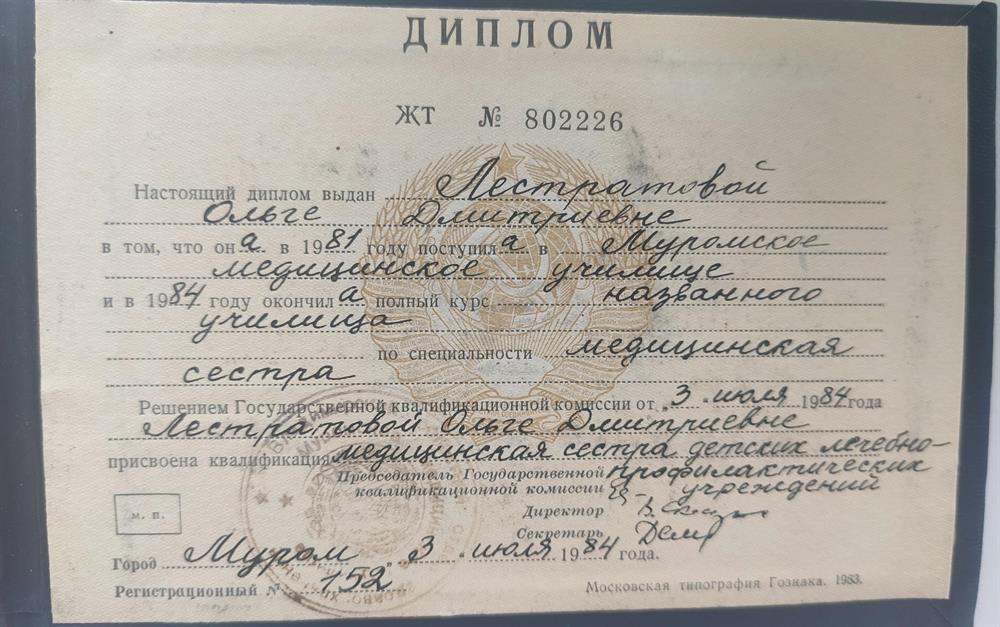 ДИПЛОМ
ЖТ № 802226
Настоящий диплом выдан Лестратовой
Ольге Дмитриевне
в том, что она в 1981 году поступила в Муромское
медицинское училище
и в 1984 году окончила полный курс названного
училища
по специальности медицинская
сестра
Решением Государственной квалификационной комиссии от „3„ июля 1984 года
Лестратовой Ольге Дмитриевне
присвоена квалификация медицинская сестра детских лечебно-
Председатель Государственной профилактических
квалификационной комиссии учреждений
Директор
м. п.
Секретарь
Город Муром „3„ июля 1984 года.
Регистрационный № 152
Московская типография Гознака. 1983.